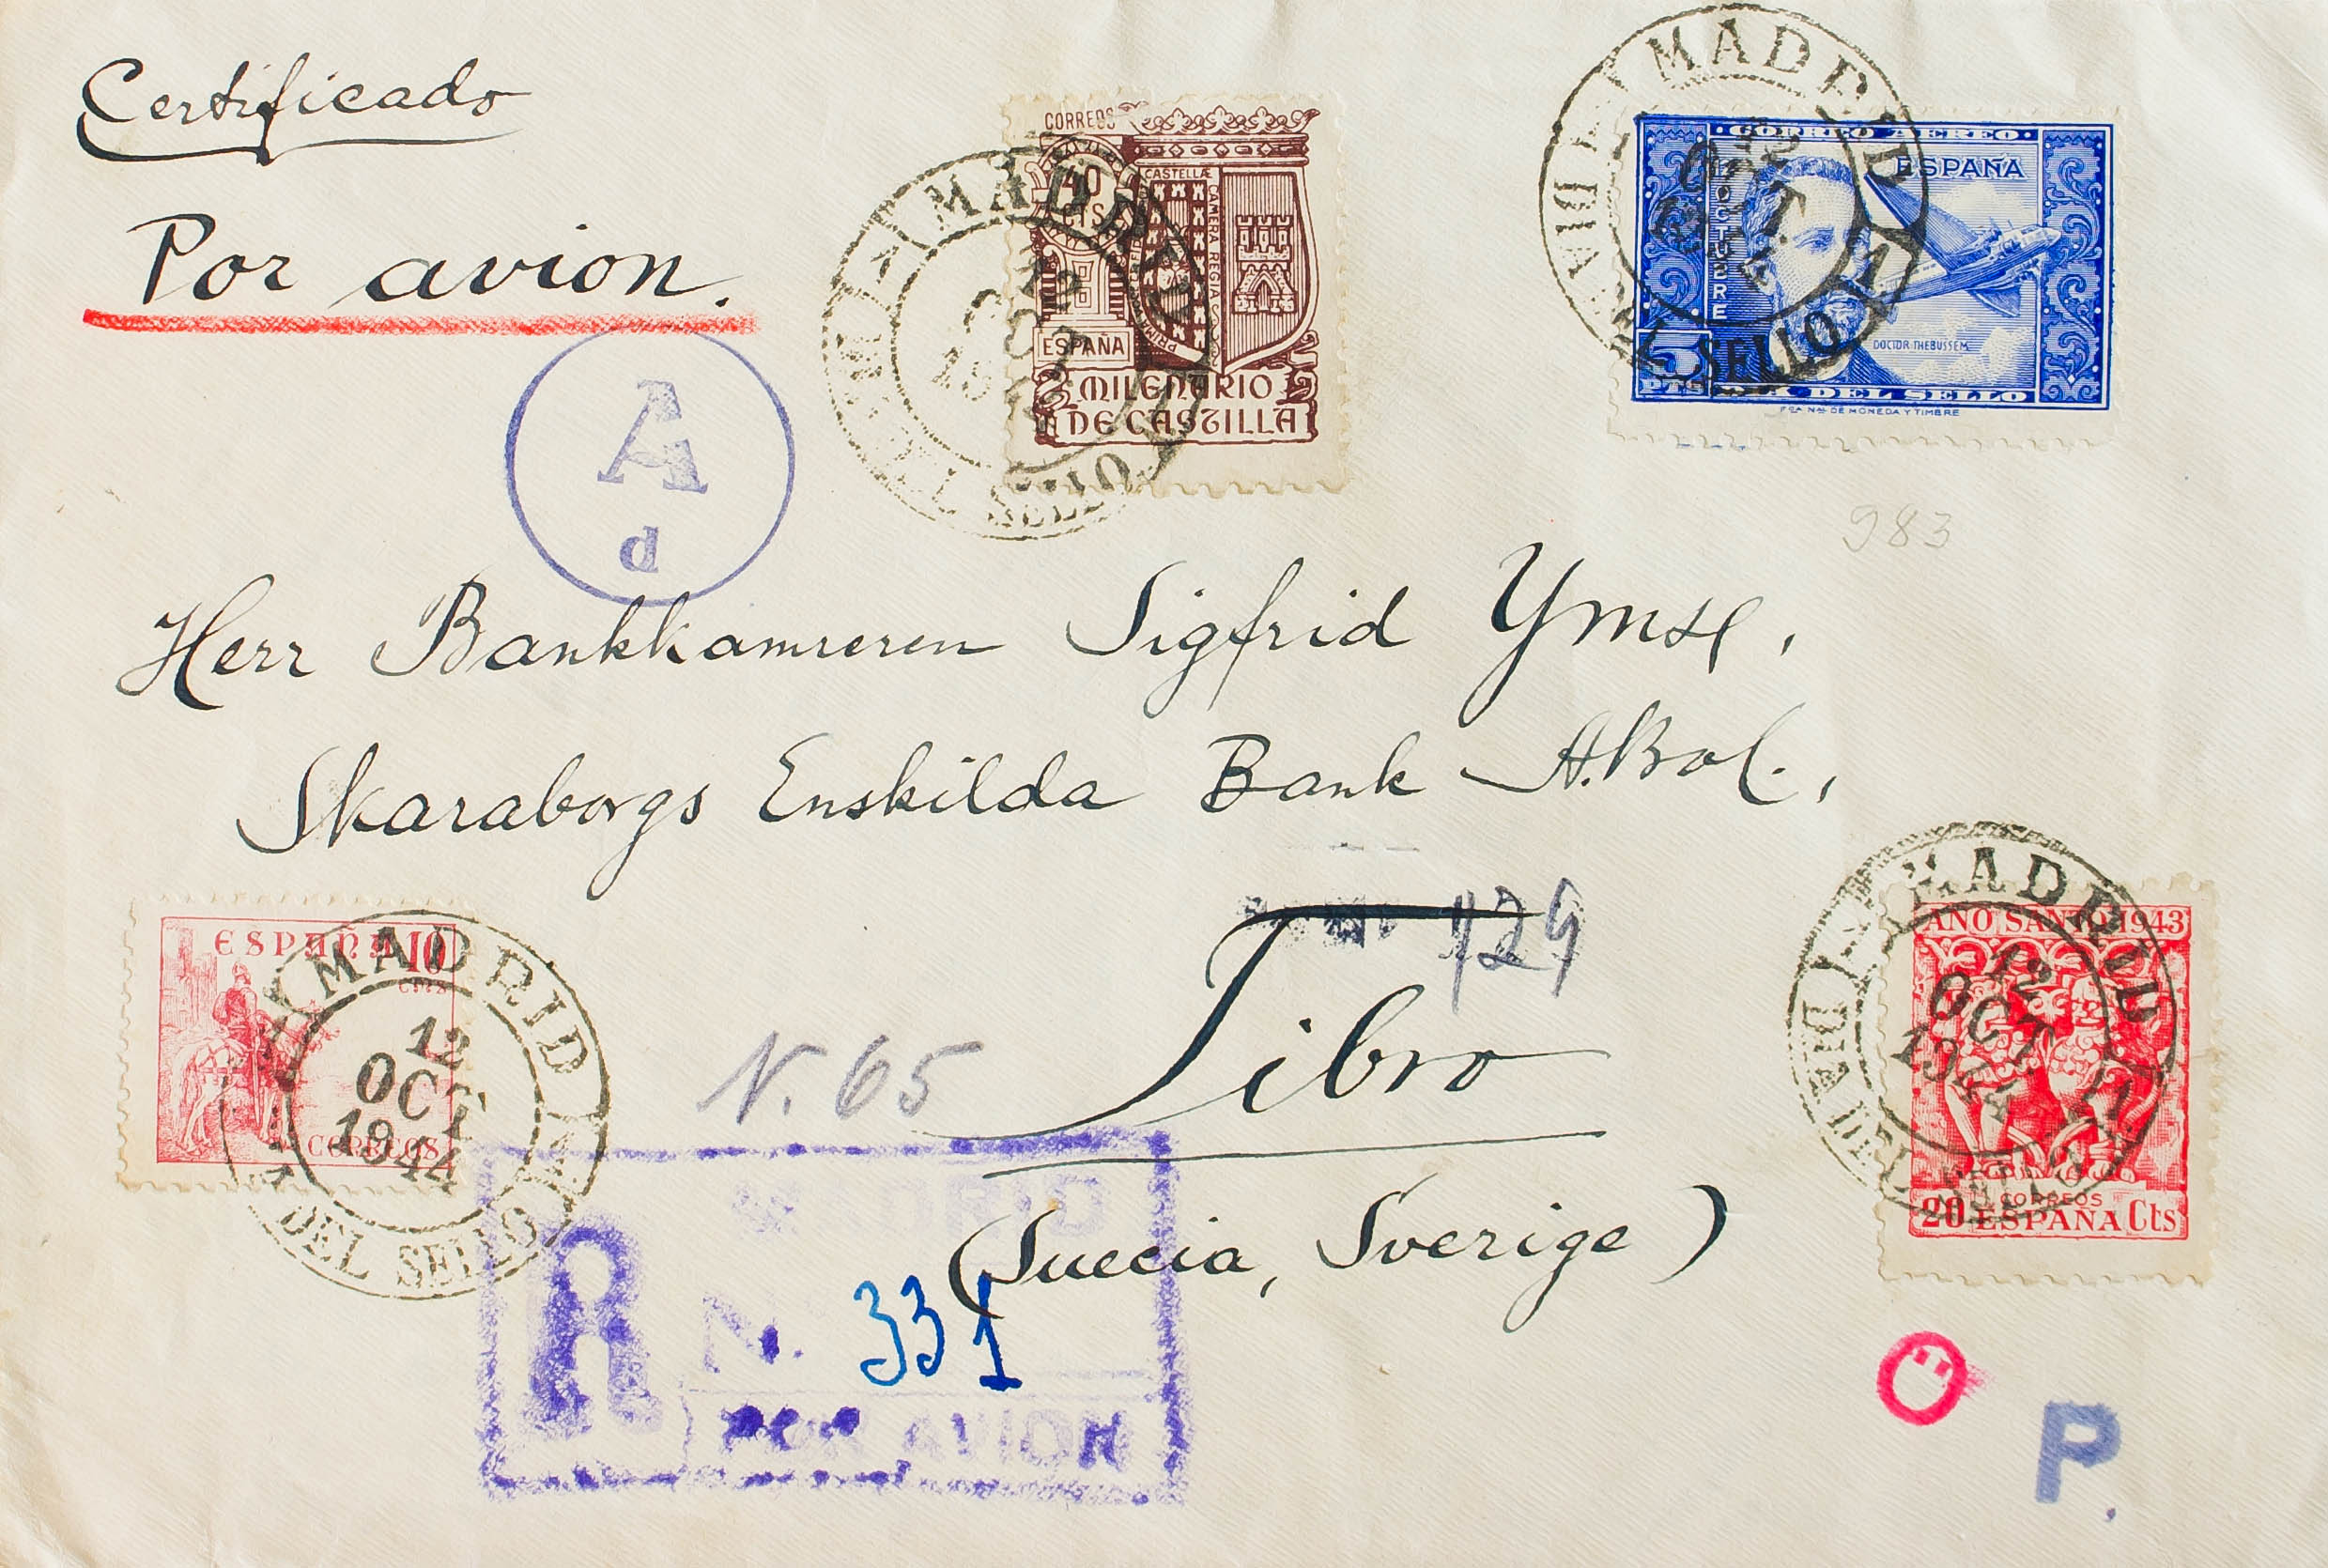 Certificado
Por avion.
A
d
CORREOS
40
CTS
CASTELLÆ
CAMERA REGIA
ESPAÑA
MILENARIO
DE CASTILLA
MADRID
CORREO AEREO
ESPAÑA
OCTUBRE
DOCTOR THEBUSSEM
5
PTS
DIA DEL SELLO
FCA NAL DE MONEDA Y TIMBRE
MADRID
12
OCT
DEL SELLO
983
Herr Bankkamreren Sigfrid Ymse,
Skaraborgs Enskilda Bank A.Bol.,
129
Tibro
(Suecia, Sverige)
N. 65
ESPAÑA 10
CTS
CORREOS
MADRID
12
OCT
1944
DEL SELLO
R
MADRID
N. 331
POR AVION
AÑO SANTO 1943
CORREOS
20 ESPAÑA Cts
MADRID
12
OCT
1944
DIA DEL SELLO
Ö
P.